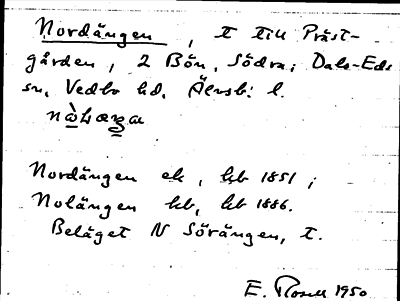 Nordängen, T till Präst-
gården, 2 Bön, Södra; Dals-Eds
sn, Vedbo hd, Älvsb: l.
Nordängen ek, kb 1851;
Nolängen kb, kb 1886.
Beläget N Sörängen, T.
E. Rosell 1950